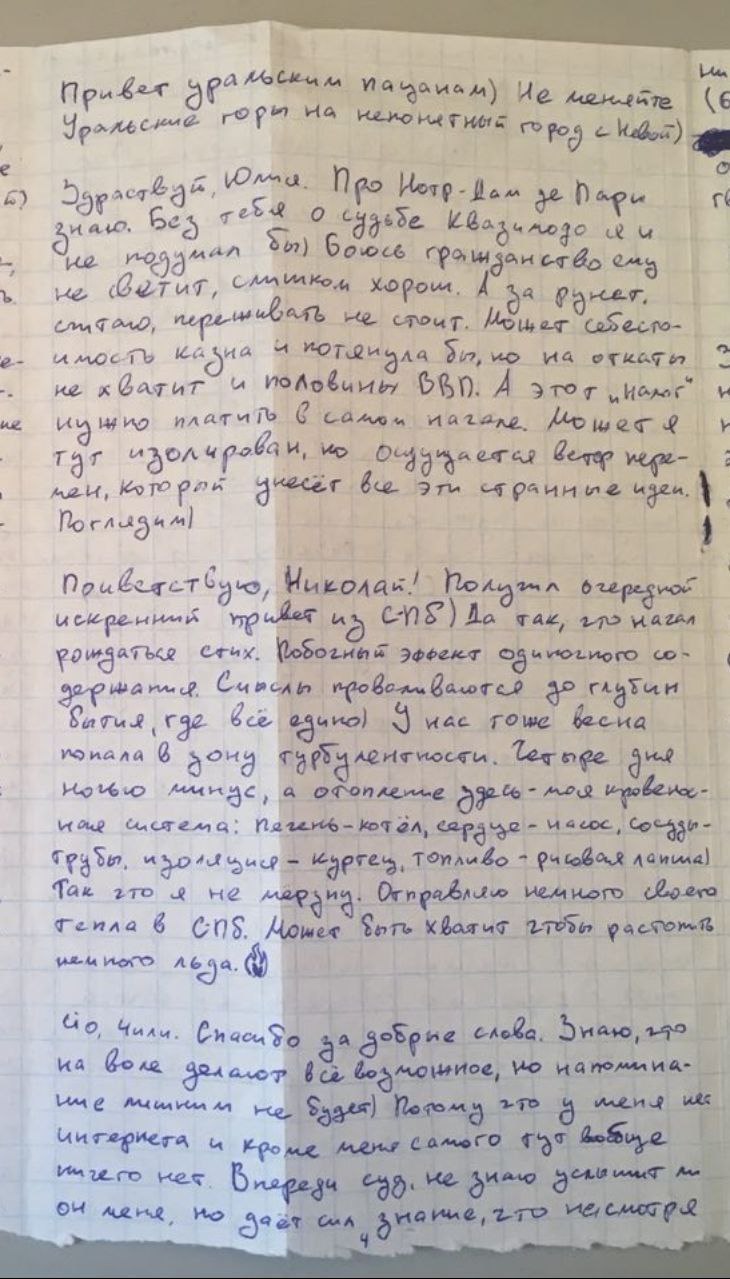 Привет уральским пацанам) Не меняйте
Уральские горы на непонятный город с Невой)
Здраствуй, Юлия. Про Нотр-Дам де Пари
знаю. Без тебя о судьбе Квазимодо я и
не подумал бы) Боюсь гражданство ему
не светит, слишком хорош. А за рунет,
считаю, переживать не стоит. Может себесто-
имость казна и потянула бы, но на откаты
не хватит и половины ВВП. А этот „налог“
нужно платить в самом начале. Может я
тут изолирован, но ощущается ветер пере-
мен, который унесёт все эти странные идеи.
Поглядим)
Приветствую, Николай! Получил очередной
искренний привет из СПб) Да так, что начал
рождаться стих. Побочный эффект одиночного со-
держания. Смыслы проваливаются до глубин
бытия, где всё едино) У нас тоже весна
попала в зону турбулентности. Четыре дня
ночью минус, а отопление здесь - моя кровенос-
ная система: печень - котёл, сердце - насос, сосуды -
трубы, изоляция - куртец, топливо - рисовая лапша)
Так что я не мерзну. Отправляю немного своего
тепла в СПб. Может быть хватит чтобы растопить
немного льда.
Чили. Спасибо за добрые слова. Знаю, что
на воле делают всё возможное, но напомина-
ние лишним не будет) Потому что у меня нет
интернета и кроме меня самого тут вообще
ничего нет. Впереди суд, не знаю услышит ли
он меня, но даёт сил знание, что несмотря
4
ни
(б